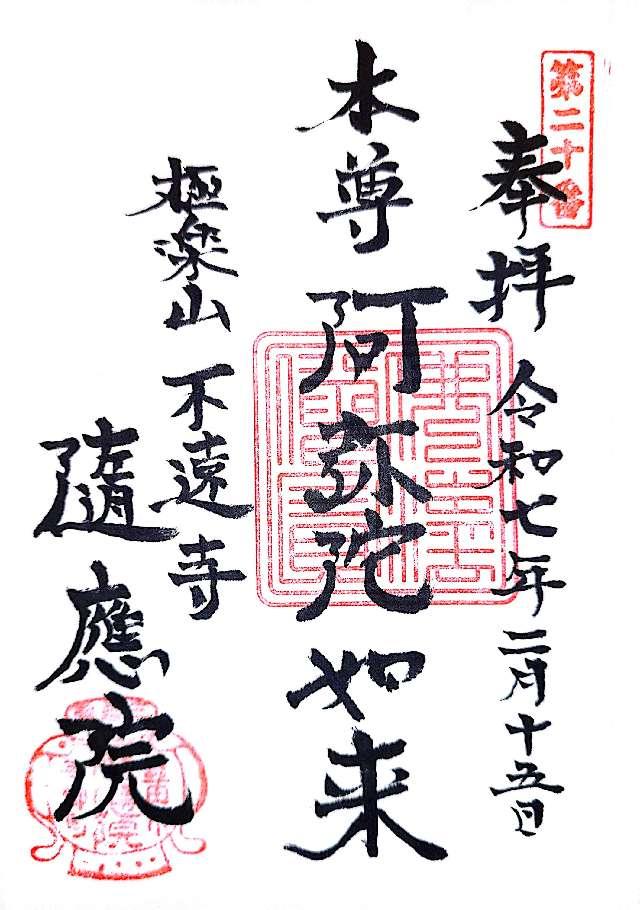 第二十番
奉拝 令和七年二月十五日
本尊 阿弥陀如来
極楽山 不遠寺
隨應院